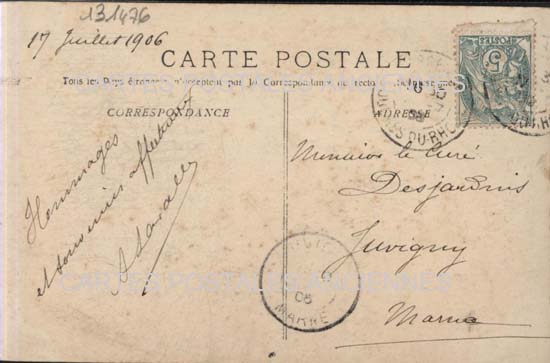 131476
17 Juillet 1906
CARTE POSTALE
Tous les Pays étrangers n'acceptent pas la Correspondance au recto
CORRESPONDANCE
ADRESSE
Hommages
et souvenir affectueux
Monsieur le Curé
Desjardins
Juvigny
Marne
POSTES
5
DU-RHÔNE
06
MARNE
CARTES POSTALES ANCIENNES